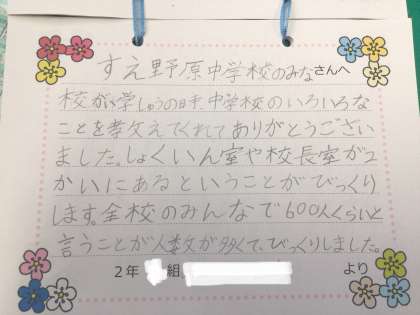 すえ野原中学校のみなさんへ
校がい学しゅうの日、中学校のいろいろな
ことを孝文えてくれてありがとうござい
ました。しょくいん室や校長室が2
かいにあるということがびっくり
します。全校のみんなで600人くらいと
言うことが人数が多くて、びっくりしました。
2年 組
より